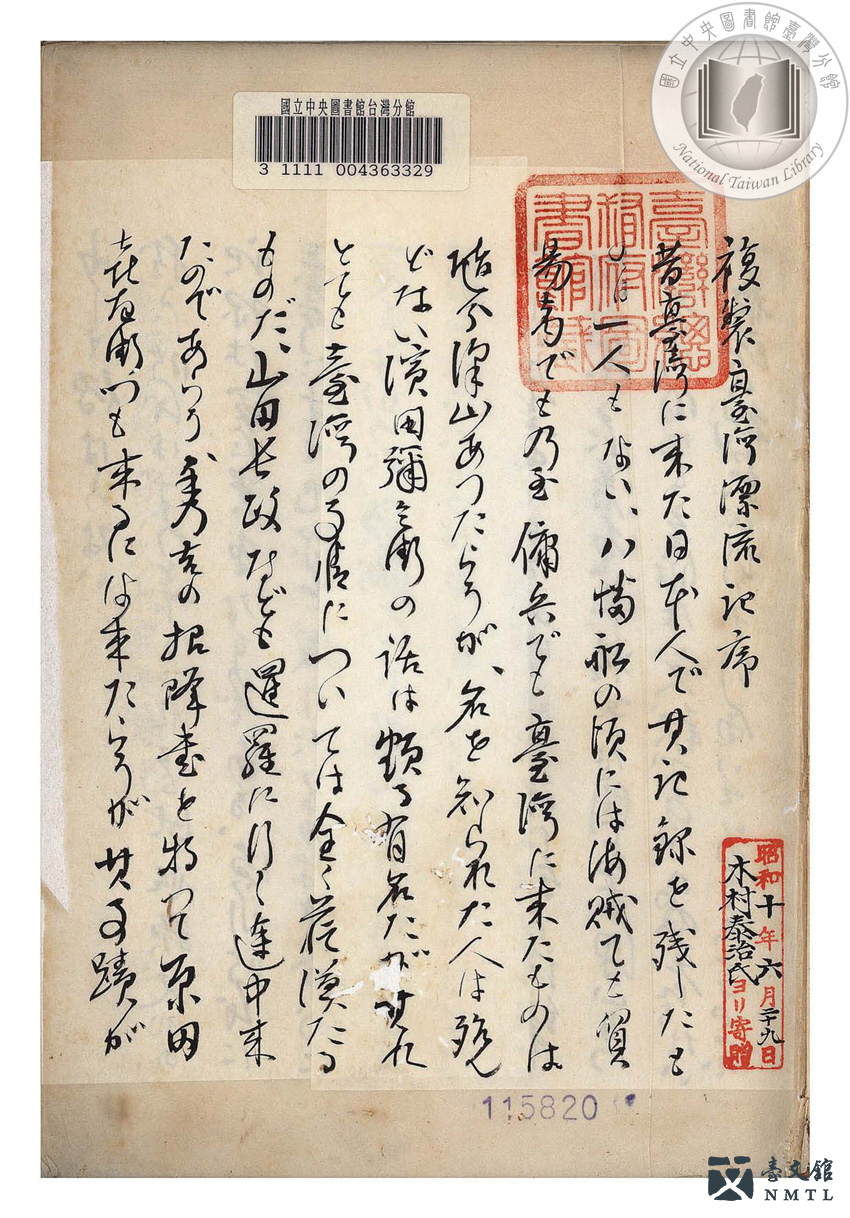 國立中央圖書館臺灣分館
National Taiwan Library
國立中央圖書館台灣分館
3 1111 004363329
臺灣總
督府圖
書館藏
複製臺灣漂流記序
昔臺灣に来た日本人で其記録を残したも
のは一人もない、八幡船の頃には海賊でも貿
易者でも乃至傭兵でも臺灣に来たものは
随分澤山あつたらうが、名を知られた人は殆ん
どない濱田彌兵衛の話は頗る有名だが其れ
とても臺灣の事情については全く茫漠たる
ものだ、山田長政なども暹羅に行く途中来
たのであらう秀吉の招降書を持つて原田
喜右衛門も来るには来たらうが其事蹟が
昭和十年六月二十九日
木村泰治氏ヨリ寄贈
115820
臺文館
NMTL